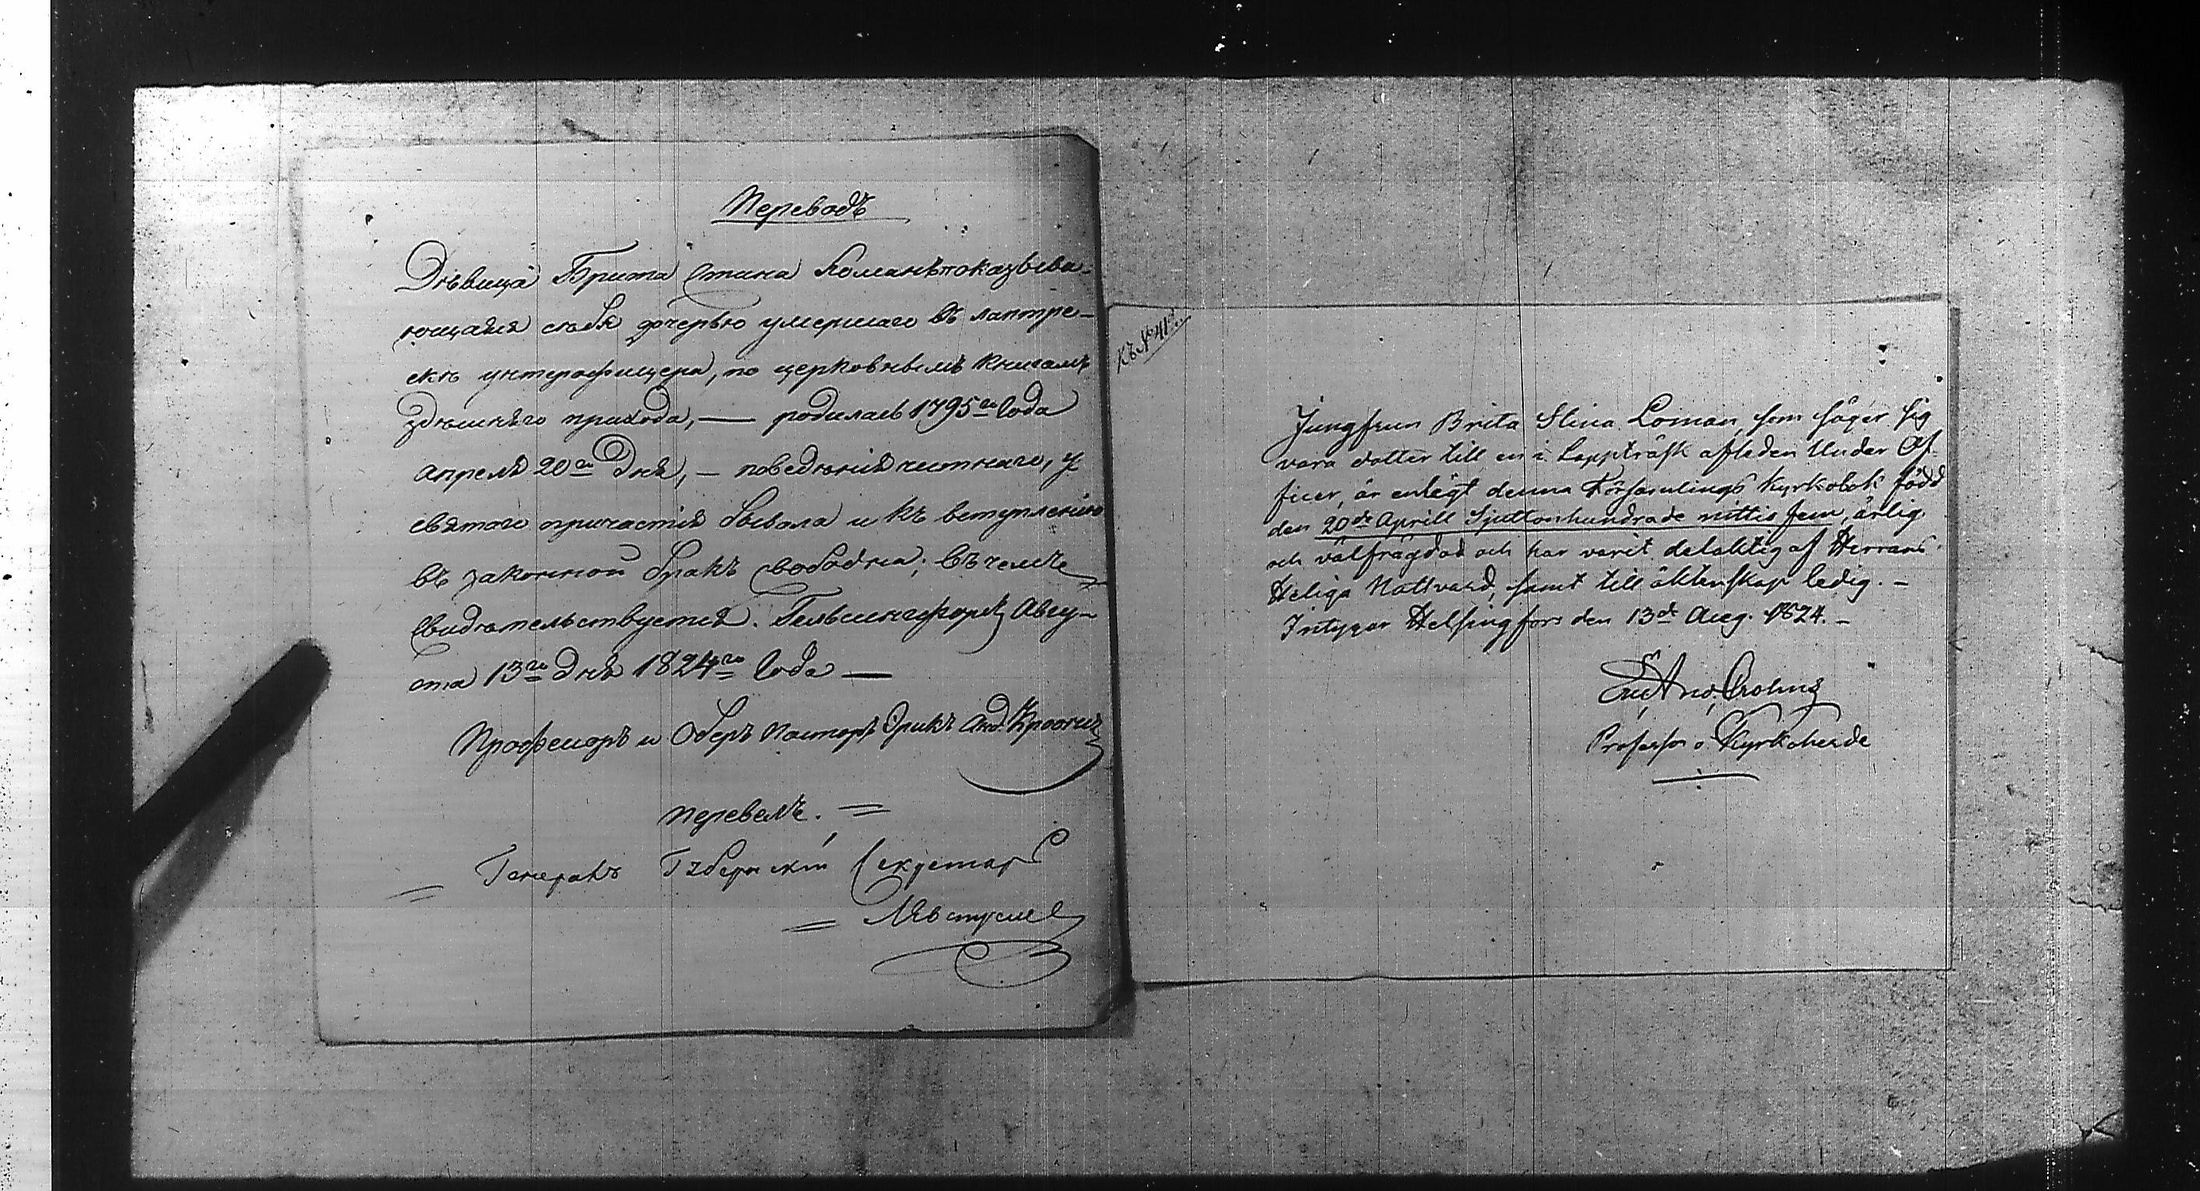 Переводъ
Дѣвица Брита Стина Ломанъ показыва-
ющаяся себя дочерью умершаго въ Лаптре-
скѣ унтерофицера, по церковнымъ книгамъ
здѣшняго прихода, — родилась 1795го Года
Апреля 20го Дня, — поведенія честнаго, у
святого причастія бывала и къ вступленію
въ законной бракъ свободна; въ чемъ
свидѣтельствуется. Гельсингфорсъ Авгу-
ста 13го Дня 1824го Года —
Профессоръ и Оберъ Пасторъ Эрикъ Анд.
Перевелъ. =
= Генералъ Губернскій Секретарь
=
Къ №
Jungfrun Brita Stina Loman, som säger sig
vara dotter till en i Lappträsk afleden Under Of-
ficer, är enligt denna Församlings Kyrkobok född
den 20de Aprill Sjuttonhundrade nittio fem, ärlig
och välfrägdad och har varit delaktig af Herrans
Heliga Nattvard, samt till äktenskap ledig. —
Intygar Helsingfors den 13de Aug. 1824. —
Professor o. Kyrkoherde